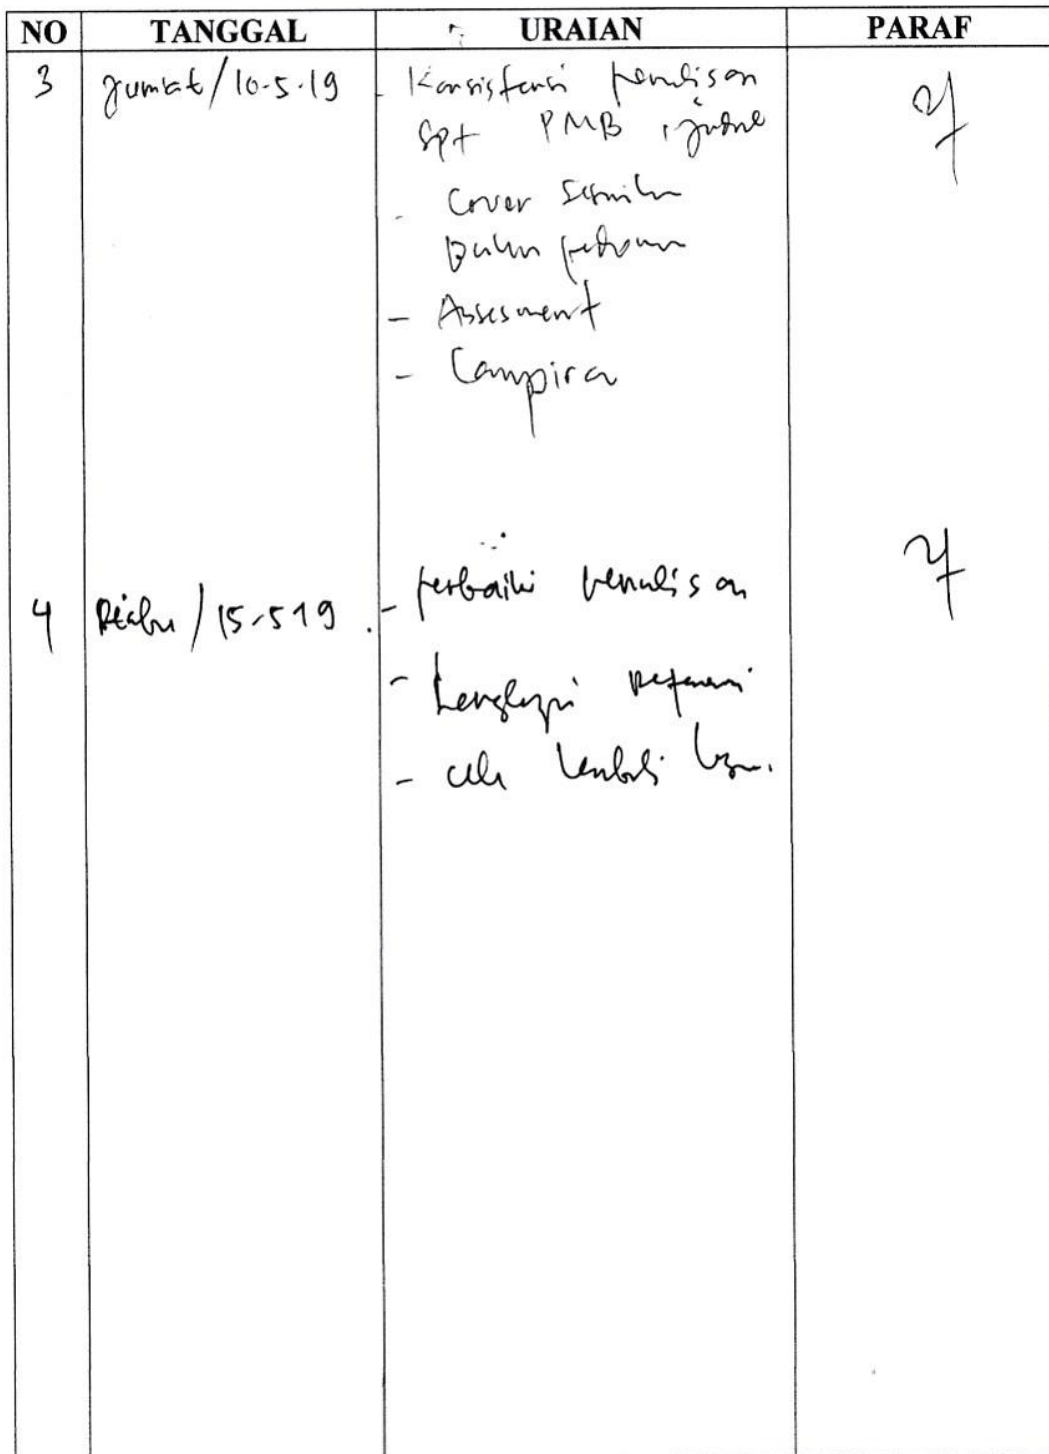 NO TANGGAL URAIAN PARAF
3 Jumat/10-5-19 - Konsistensi penulisan
Spt PMB, judul
- Cover
- Assesment
- Lampiran
4 Rabu/15-5 19. - perbaiki penulisan
- Lengkapi Referensi
- cek kembali